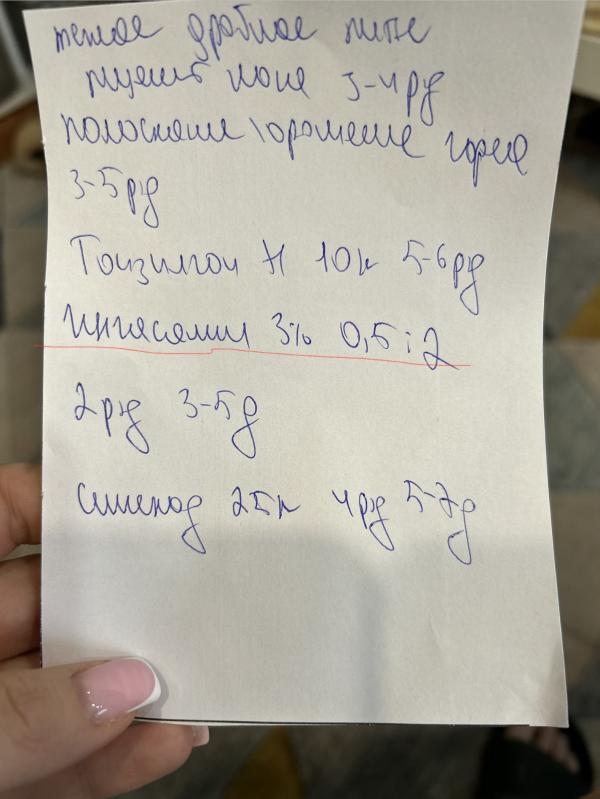 теплое дробное питье
туалет носа 3-4 р/д
полоскание \ орошение горла
3-5 р/д
Тонзилгон Н 10к 5-6 р/д
Ингасалин 3% 0,5:2
2 р/д 3-5 д
синекод 25к 4 р/д 5-7 д